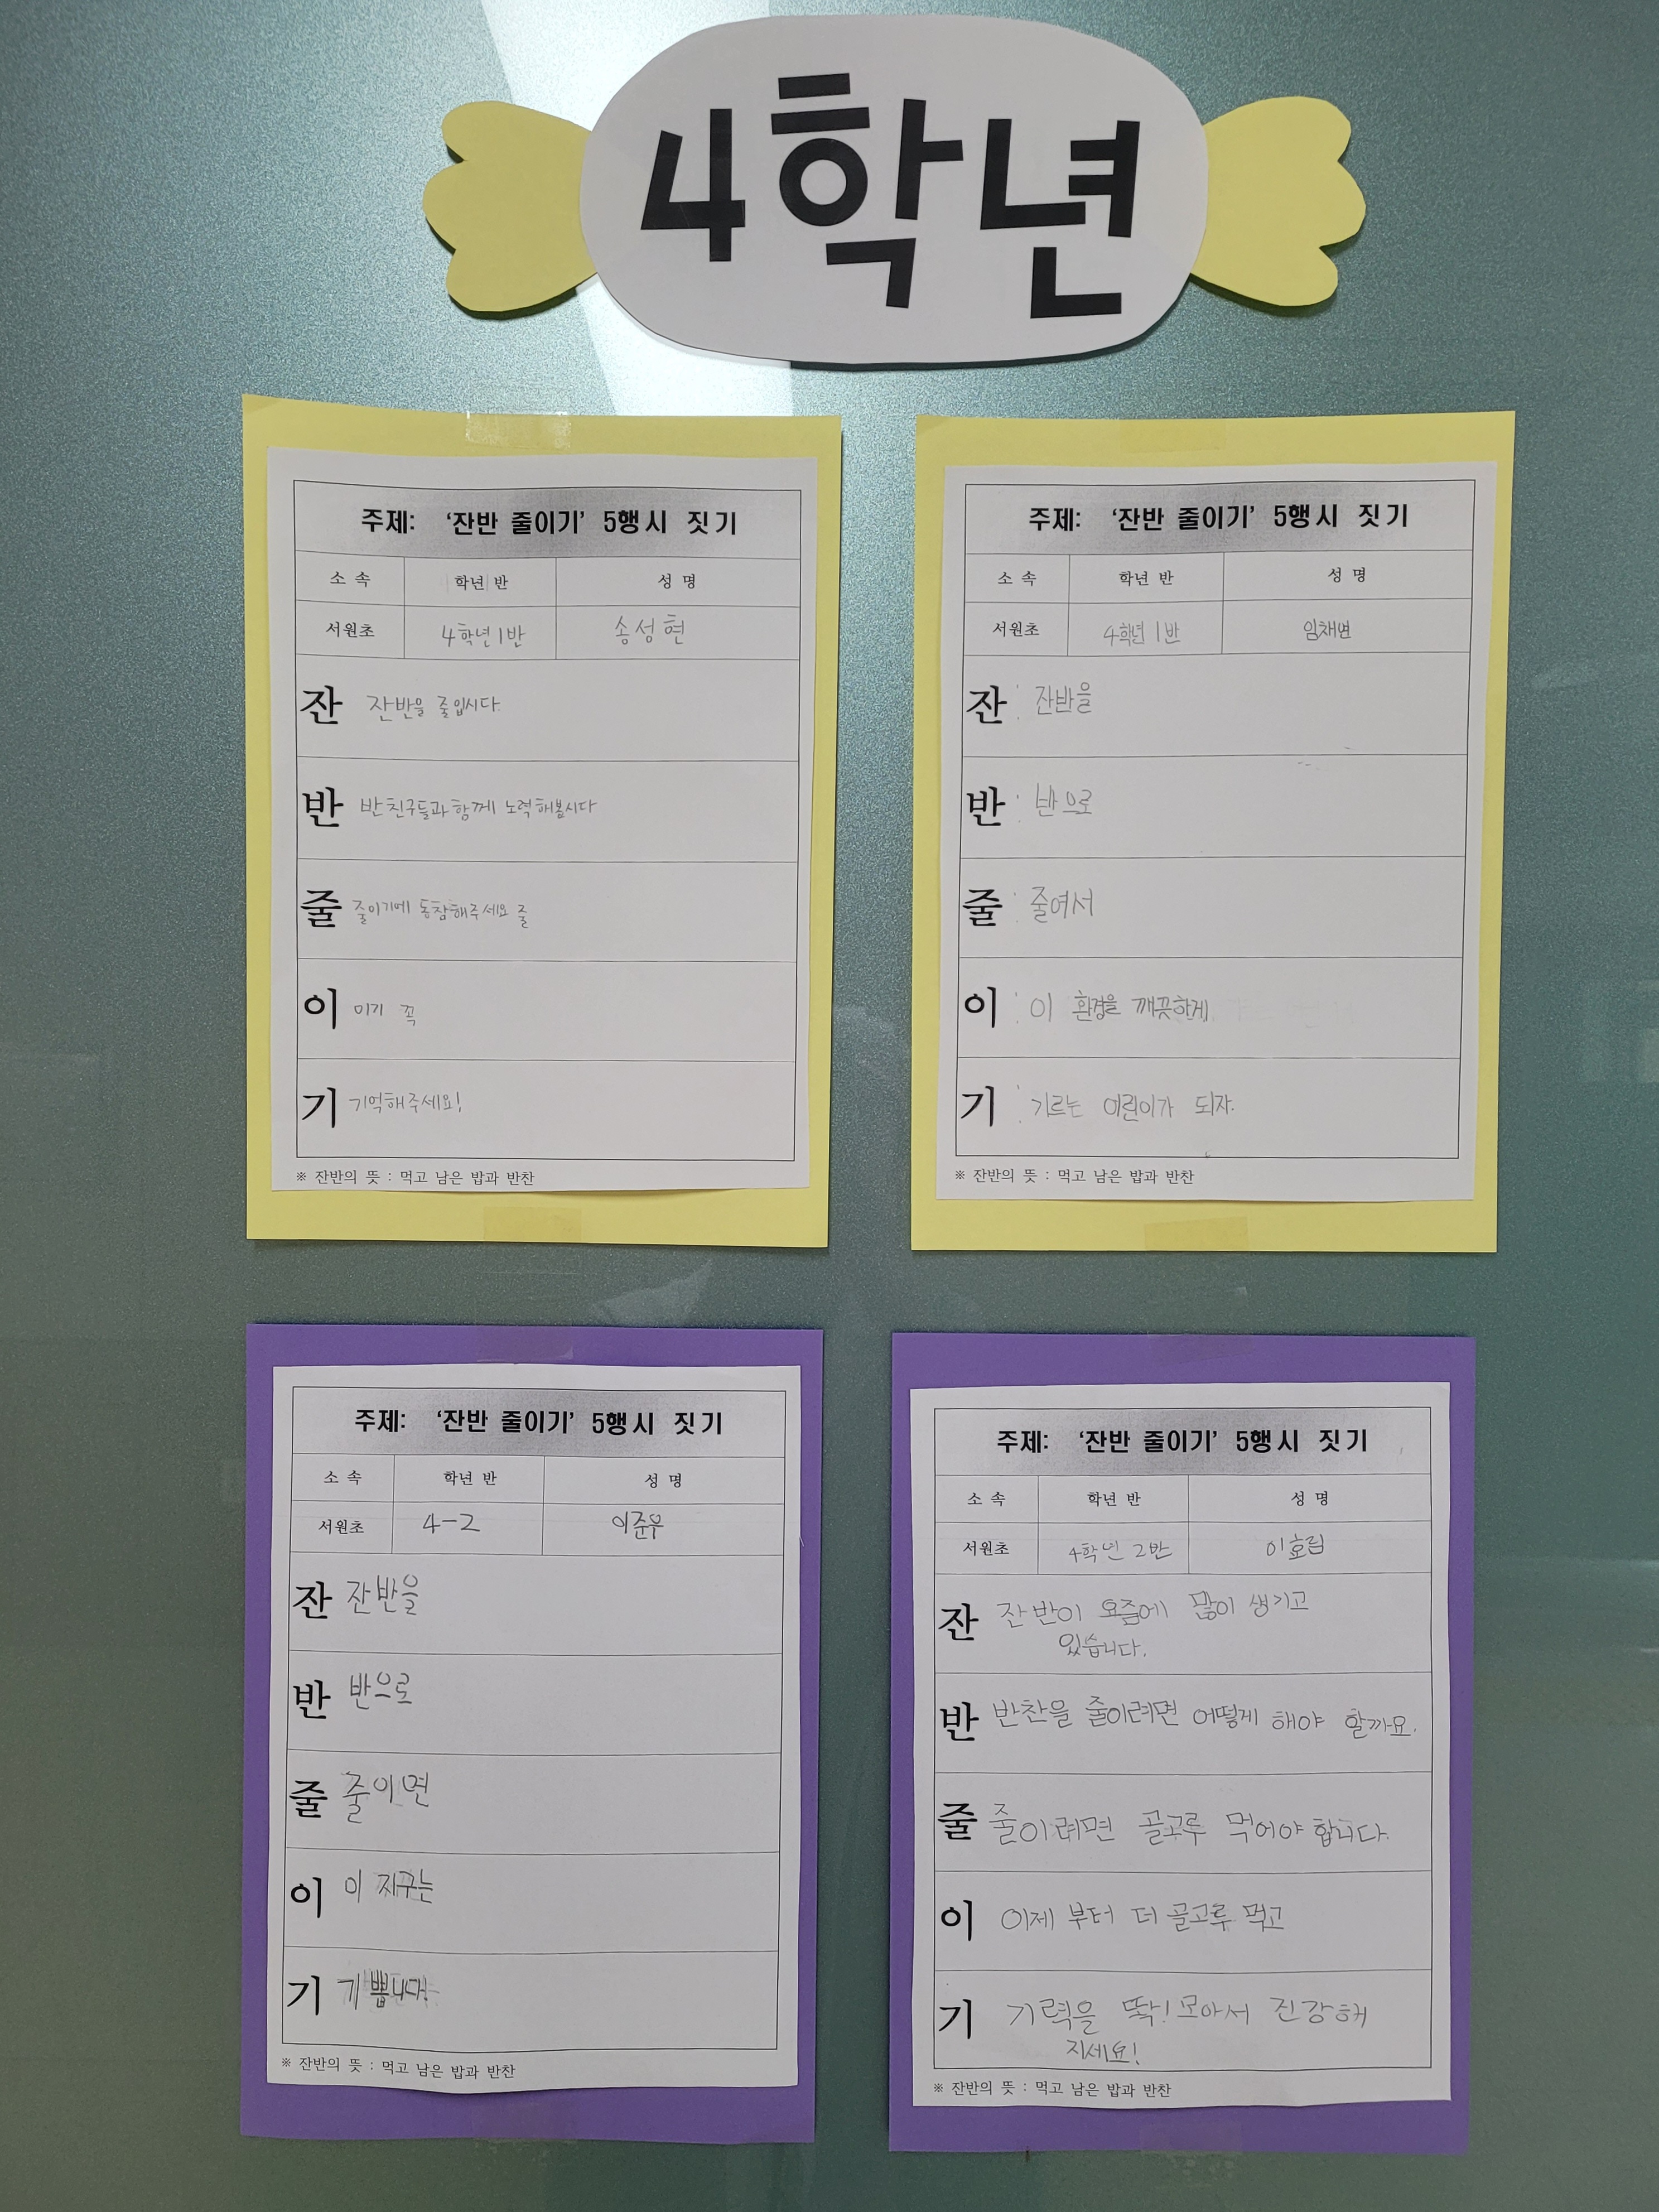 4학년
주제: ‘잔반 줄이기’ 5행시 짓기
소 속 학년 반 성 명
서원초 4학년 1반 송성현
잔 잔반을 줄입시다.
반 반친구들과 함께 노력해봅시다
줄 줄이기에 동참해주세요 줄
이 이기 꼭
기 기억해주세요!
※ 잔반의 뜻 : 먹고 남은 밥과 반찬
주제: ‘잔반 줄이기’ 5행시 짓기
소 속 학년 반 성 명
서원초 4학년 1반 임채변
잔 : 잔반을
반 : 반으로
줄 : 줄여서
이 : 이 환경을 깨끗하게
기 : 기르는 어린이가 되자.
※ 잔반의 뜻 : 먹고 남은 밥과 반찬
주제: ‘잔반 줄이기’ 5행시 짓기
소 속 학년 반 성 명
서원초 4-2 이준우
잔 잔반을
반 반으로
줄 줄이면
이 이 지구는
기 기쁩니다!
※ 잔반의 뜻 : 먹고 남은 밥과 반찬
주제: ‘잔반 줄이기’ 5행시 짓기
소 속 학년 반 성 명
서원초 4학년 2반 이효림
잔 잔반이 요즘에 많이 생기고
있습니다.
반 반찬을 줄이려면 어떻게 해야 할까요.
줄 줄이려면 골고루 먹어야 합니다.
이 이제 부터 더 골고루 먹고
기 기력을 딱! 모아서 진강해
지세요!
※ 잔반의 뜻 : 먹고 남은 밥과 반찬